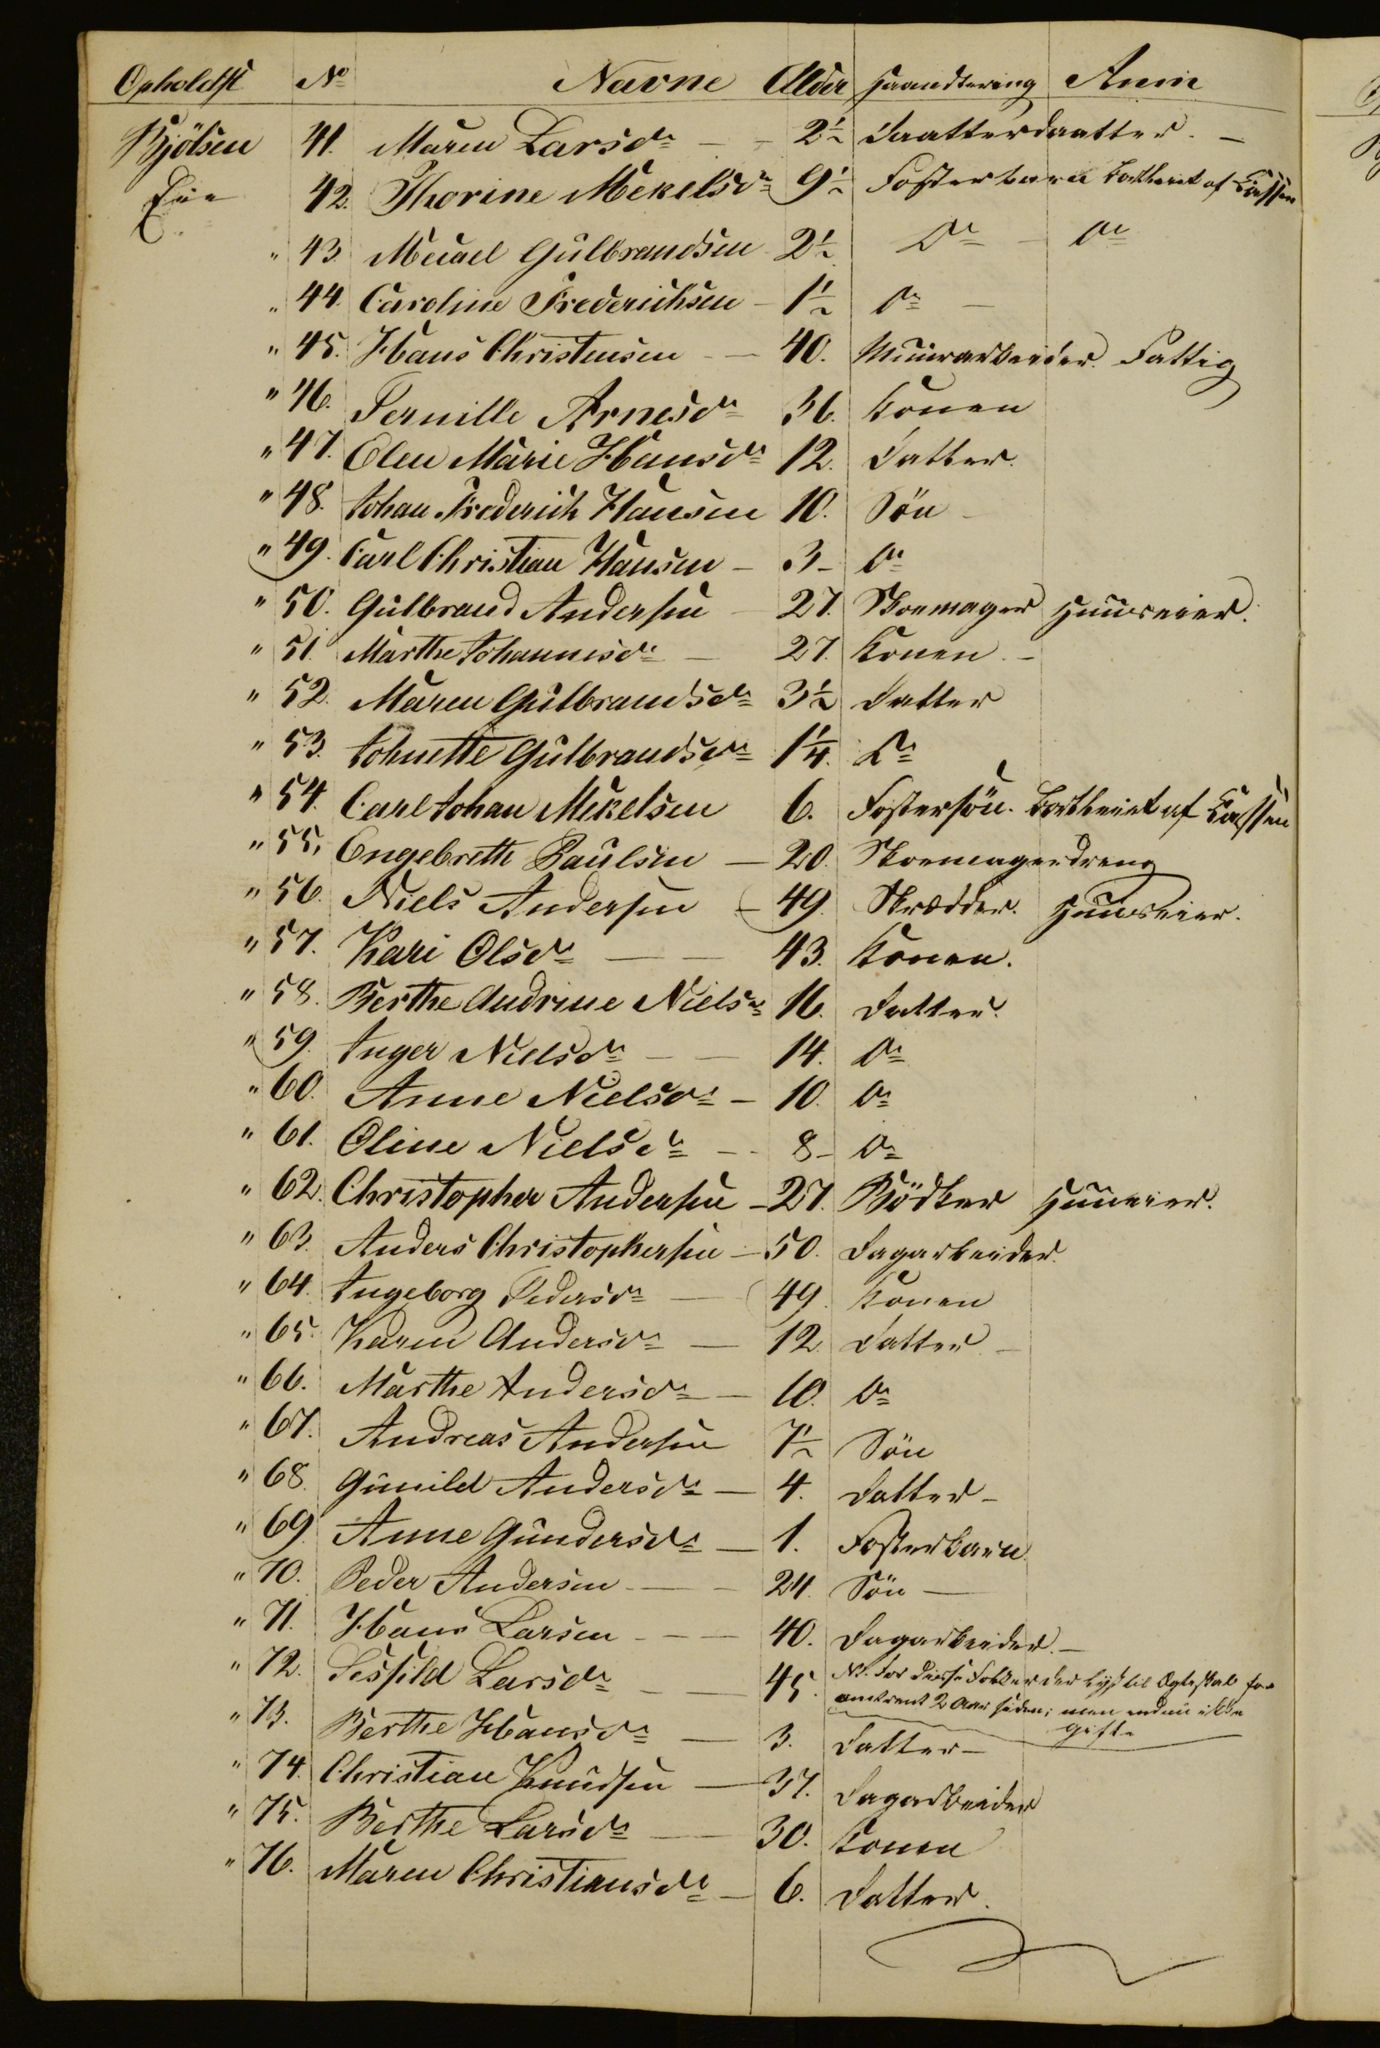 Opholdst No Navne Alder Haandtering Anm
Bjölsen 41. Maren Larsdr - - 2½ Daatterdaatter. -
Eie 42. Thorine Mekelsdr 9½ Fosterbarn bortleiet af Cassen
" 43 Micael Gulbrandsen 2½ Do - Do
" 44. Caroline Frederichsen - 1½ Do -
" 45. Hans Christensen - - 40. Muurarbeider. Fattig
" 46. Pernille Arnesdr 36. Konen
" 47. Olea Marie Hansdr 12. Datter.
" 48. Johan Frederich Hansen 10. Sön -
" 49. Carl Christian Hansen - 3 - Do
" 50. Gulbrand Andersen 27. Skomager Huuseier.
" 51. Marthe Johannesdr - 27. Konen. -
" 52. Maren Gulbrandsdr 3½ Datter
" 53. Johnette Gulbrandsdr 1¼. Do
" 54. Carl Johan Mikelsen 6. Fostersön. bortleiet af Cassen
" 55. Engebreth Paulsen - 20. Skomagerdreng
" 56. Niels Andersen - 49. Skrædder. Huuseier.
" 57. Kari Olsdr - - 43. Konen.
" 58. Berthe Andrine Nielsdr 16. Datter.
" 59. Inger Nielsdr - - 14. Do
" 60. Anne Nielsdr - 10. Do
" 61. Oline Nielsdr - - 8 - Do
" 62. Christopher Andersen - 27. Bödker Huuseier.
" 63. Anders Christophersen - 50. Dagarbeider.
" 64. Ingeborg Pedersdr - 49. Konen
" 65. Karen Andersdr - 12. Datter -
" 66. Marthe Andersdr - 10. Do
" 67. Andreas Andersen 7½ Sön
" 68. Gunild Andersdr - 4. Datter -
" 69. Anne Gundersdr - 1. Fosterbarn
" 70. Peder Andersen - - 24. Sön -
" 71. Hans Larsen - - 40. Dagarbeider. -
" 72. Sisfild Larsdr - 45. NB. For disse Folk er der lyst til Ægteskab for
omtrent 2 Aar siden; men endnu ikke
gifte
" 73. Berthe Hansdr - 3. Datter -
" 74. Christian Knudsen - 37. Dagarbeider
" 75. Berthe Larsdr - 30. Konen
" 76. Maren Christiansdr - 6. Datter.